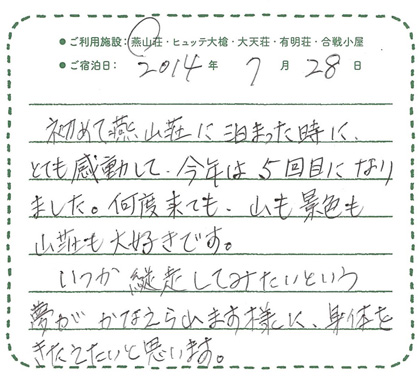 ●ご利用施設：燕山荘・ヒュッテ大槍・大天荘・有明荘・合戦小屋
●ご宿泊日：2014年 7月 28日
初めて燕山荘に泊まった時に、
とても感動して、今年は5回目になり
ました。何度来ても、山も景色も
山荘も大好きです。
いつか縦走してみたいという
夢が かなえられます様に、身体を
きたえたいと思います。